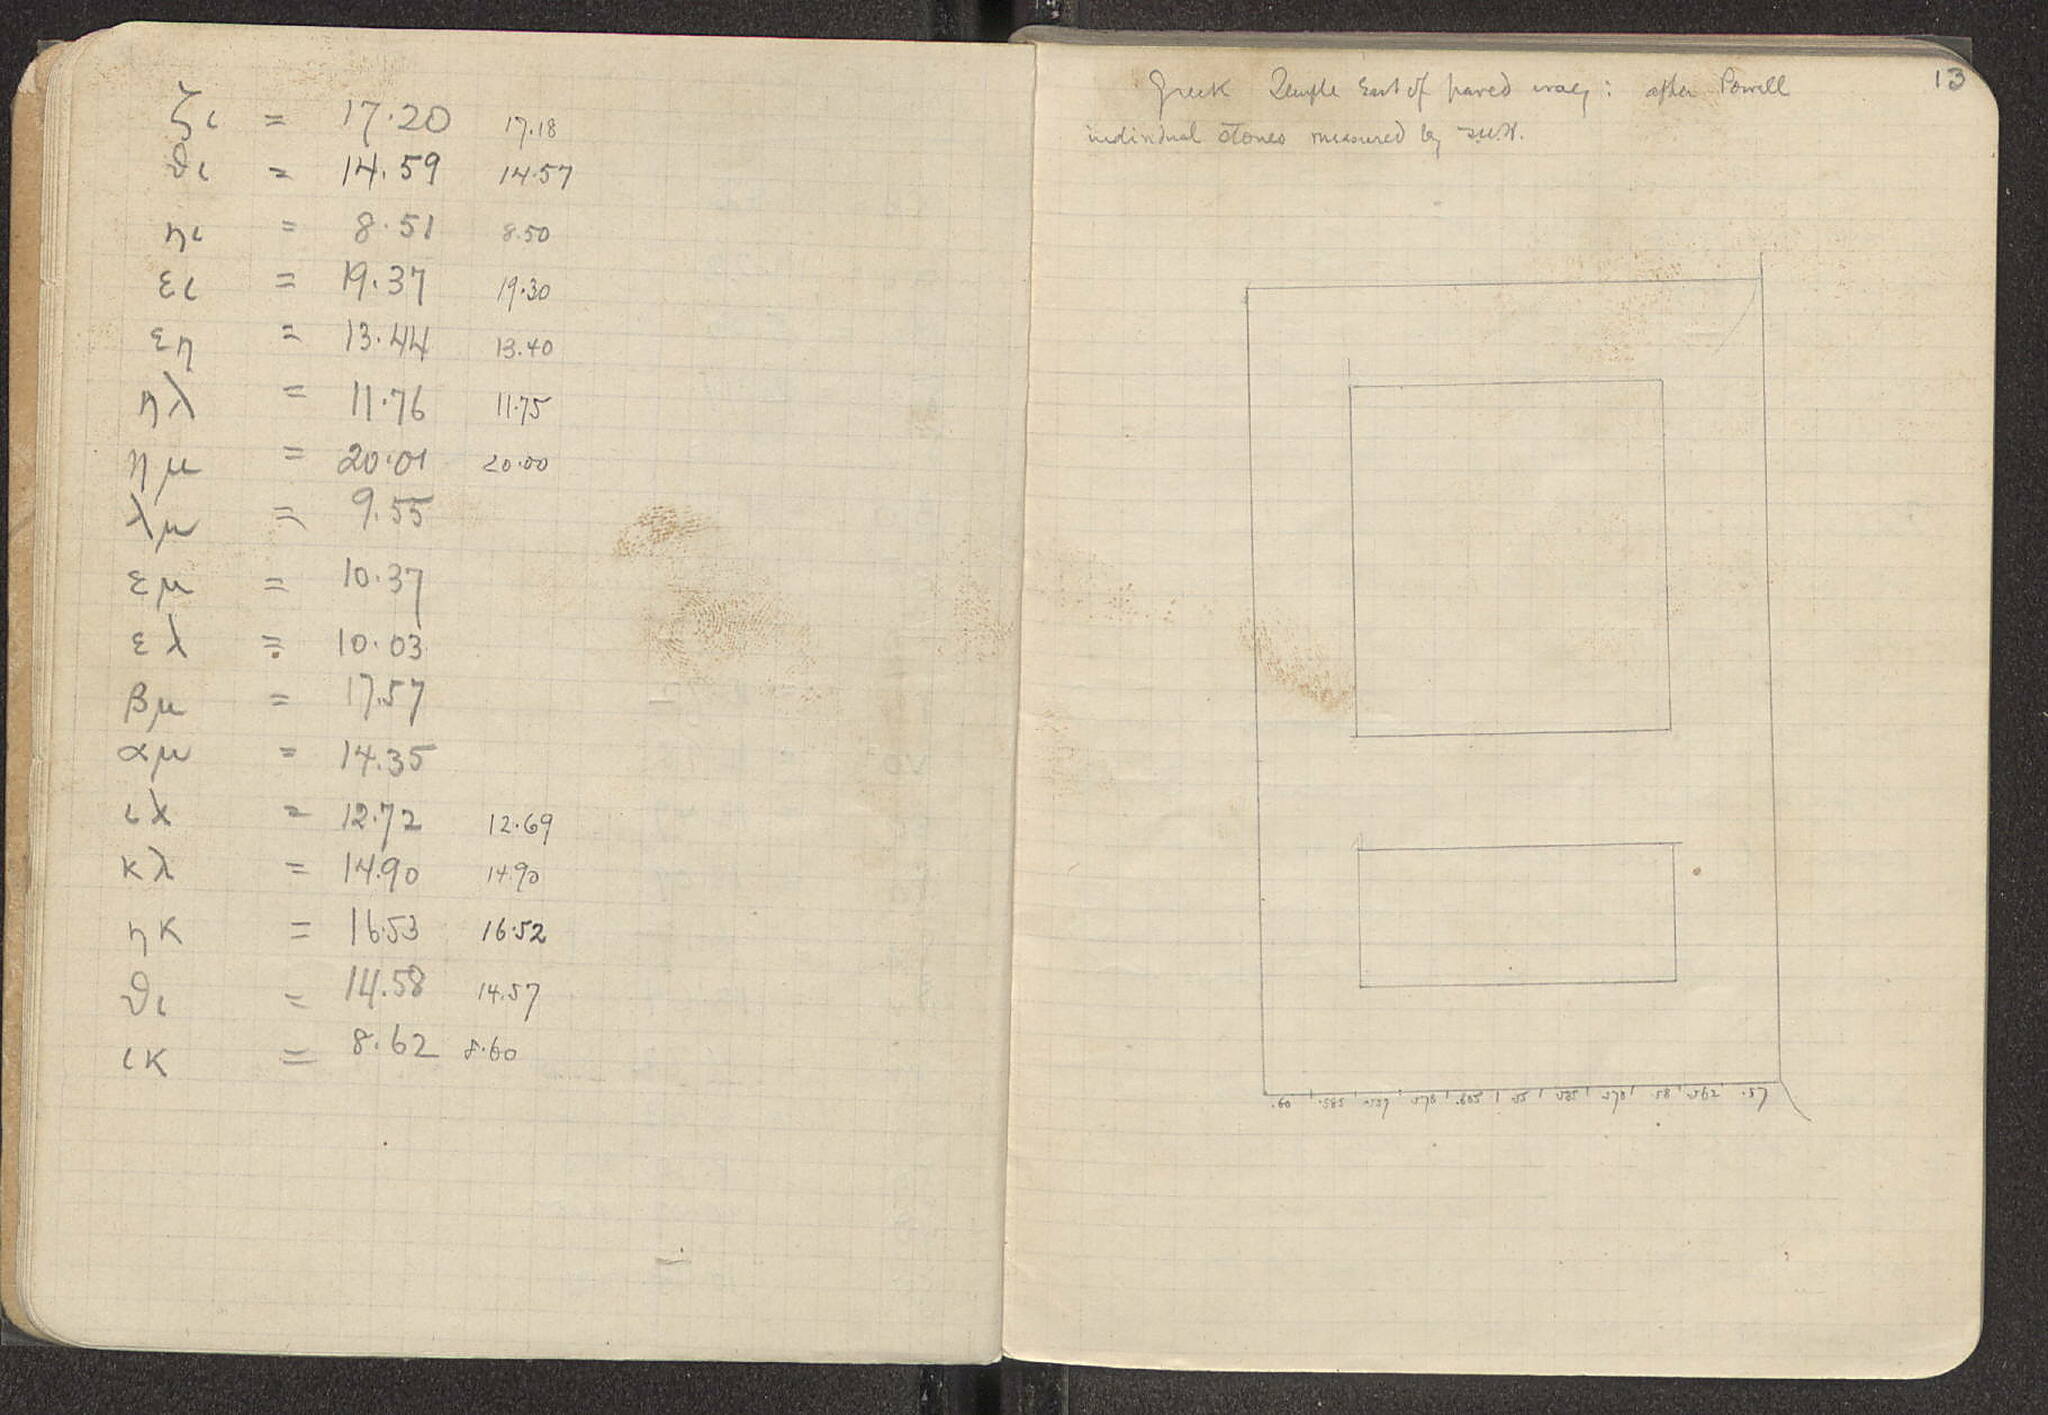 ζι = 17.20 17.18
θι = 14.59 14.57
ηι = 8.51 8.50
ει = 19.37 19.30
εη = 13.44 13.40
ηλ = 11.76 11.75
ημ = 20.01 20.00
λμ = 9.55
εμ = 10.37
ελ = 10.03
βμ = 17.57
αμ = 14.35
ιλ = 12.72 12.69
κλ = 14.90 14.90
ηκ = 16.53 16.52
θι = 14.58 14.57
ικ = 8.62 8.60
13
Greek Temple East of paved way: after Powell
individual stones measured by
.60 .585 .578 .605 .55 .585 .578 .58 .562 .57